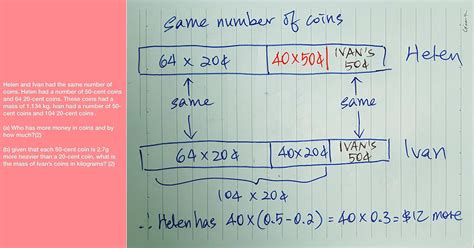 Helen and Ivan had the same number of
coins. Helen had a number of 50-cent coins
and 64 20-cent coins. These coins had a
mass of 1.134 kg. Ivan had a number of 50-
cent coins and 104 20-cent coins.
(a) Who has more money in coins and by
how much?(2)
(b) given that each 50-cent coin is 2.7g
more heavier than a 20-cent coin, what is
the mass of Ivan's coins in kilograms? (2)
same number of coins
64 x 20¢ 40x50¢ IVAN'S 50¢ Helen
same same
64 x 20¢ 40x20¢ IVAN'S 50¢ Ivan
104 x 20¢
∴ Helen has 40x(0.5-0.2) = 40x0.3 = $12 more